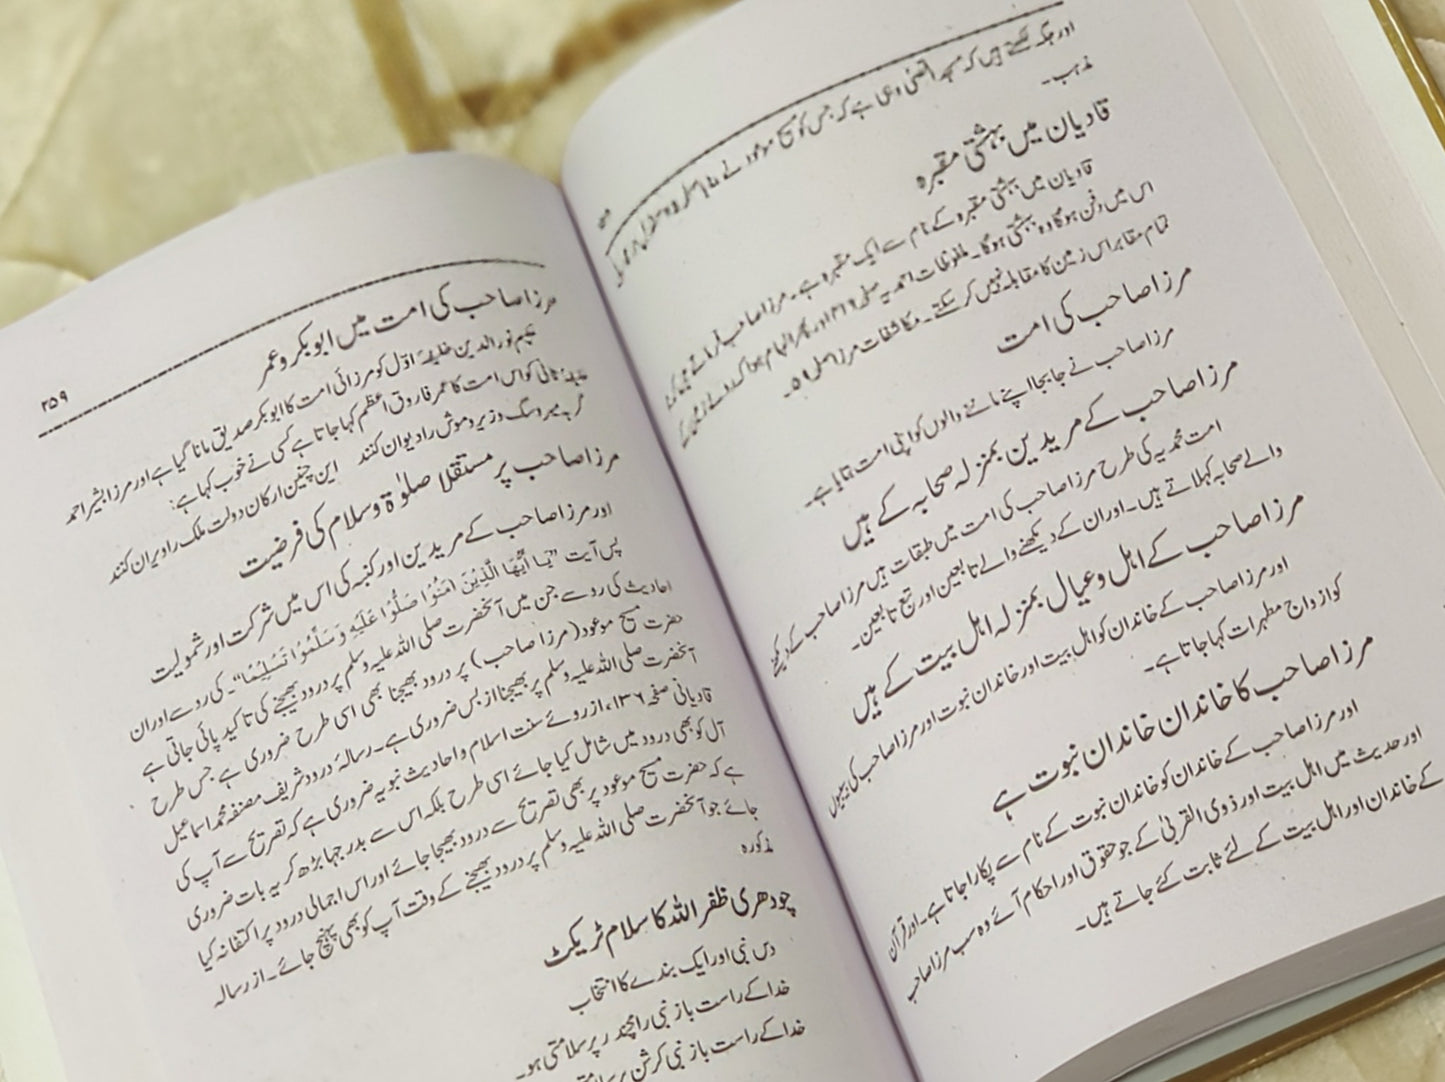 اور جگہ لکھتے ہیں کہ مسجد اقصٰی وہی ہے کہ جس کو مسیح موعود نے بنایا
مذہب۔
قادیان میں بہشتی مقبرہ
قادیان میں بہشتی مقبرہ کے نام سے ایک مقبرہ ہے۔ مرزا صاحب فرماتے ہیں کہ
اس میں دفن ہوگا وہ بہشتی ہوگا۔ ملفوظات احمدیہ صفحہ اور پھر الہام ہوا کہ روئے زمین کے
تمام مقابر اس زمین کا مقابلہ نہیں کر سکتے۔ مکاشفات مرزا صفحہ ۵۹۔
مرزا صاحب کی امت
مرزا صاحب نے جابجا اپنے ماننے والوں کو اپنی امت بتایا ہے۔
مرزا صاحب کے مریدین بمنزلہ صحابہ کے ہیں
امت محمدیہ کی طرح مرزا صاحب کی امت میں طبقات ہیں مرزا صاحب کے دیکھنے
والے صحابہ کہلاتے ہیں۔ اور ان کے دیکھنے والے تابعین اور تبع تابعین۔
مرزا صاحب کے اہل و عیال بمنزلہ اہل بیت کے ہیں
اور مرزا صاحب کے خاندان کو اہل بیت اور خاندان نبوت اور مرزا صاحب کی بیبیوں
کو ازواج مطہرات کہا جاتا ہے۔
مرزا صاحب کا خاندان خاندان نبوت ہے
اور مرزا صاحب کے خاندان کو خاندان نبوت کے نام سے پکارا جاتا ہے۔ اور قرآن
اور حدیث میں اہل بیت اور ذوی القربیٰ کے جو حقوق اور احکام آئے وہ سب مرزا صاحب
کے خاندان اور اہل بیت کے لئے ثابت کئے جاتے ہیں۔
۲۵۹
مرزا صاحب کی امت میں ابوبکر و عمر
حکیم نور الدین خلیفۂ اوّل کو مرزائی امت کا ابوبکر صدیق مانا گیا ہے اور مرزا بشیر احمد
خلیفۂ ثانی کو اس امت کا عمر فاروق اعظم کہا جاتا ہے کسی نے خوب کہا ہے:
گربہ میر و سگ وزیر و موش را دیوان کنند این چنین ارکان دولت ملک را ویران کنند
مرزا صاحب پر مستقلاً صلوٰۃ و سلام کی فرضیت
اور مرزا صاحب کے مریدین اور کنبہ کی اس میں شرکت اور شمولیت
پس آیت "يَـا اَيُّهَا الَّذِيْنَ اٰمَنُوْا صَلُّوْا عَلَيْهِ وَسَلِّمُوْا تَسْلِيْمًا"۔ کی رو سے اور ان
احادیث کی رو سے جن میں آنحضرت صلی اللہ علیہ وسلم پر درود بھیجنے کی تاکید پائی جاتی ہے
حضرت مسیح موعود (مرزا صاحب) پر درود بھیجنا بھی اسی طرح ضروری ہے جس طرح
آنحضرت صلی اللہ علیہ وسلم پر بھیجنا از بس ضروری ہے۔ رسالہ درود شریف مصنفہ محمد اسماعیل
قادیانی صفحہ ۱۳۶، از روئے سنت اسلام و احادیث نبویہ ضروری ہے کہ تصریح سے آپ کی
آل کو بھی درود میں شامل کیا جائے اسی طرح بلکہ اس سے بدرجہا بڑھ کر یہ بات ضروری
ہے کہ حضرت مسیح موعود پر بھی تصریح سے درود بھیجا جائے اور اس اجمالی درود پر اکتفا نہ کیا
جائے جو آنحضرت صلی اللہ علیہ وسلم پر درود بھیجنے کے وقت آپ کو بھی پہنچ جائے۔ از رسالہ
مذکورہ
چودھری ظفر اللہ کا سلام ٹریکٹ
دس نبی اور ایک بندے کا انتخاب
خدا کے راست باز نبی رامچندر پر سلامتی ہو۔
خدا کے راست باز نبی کرشن پر